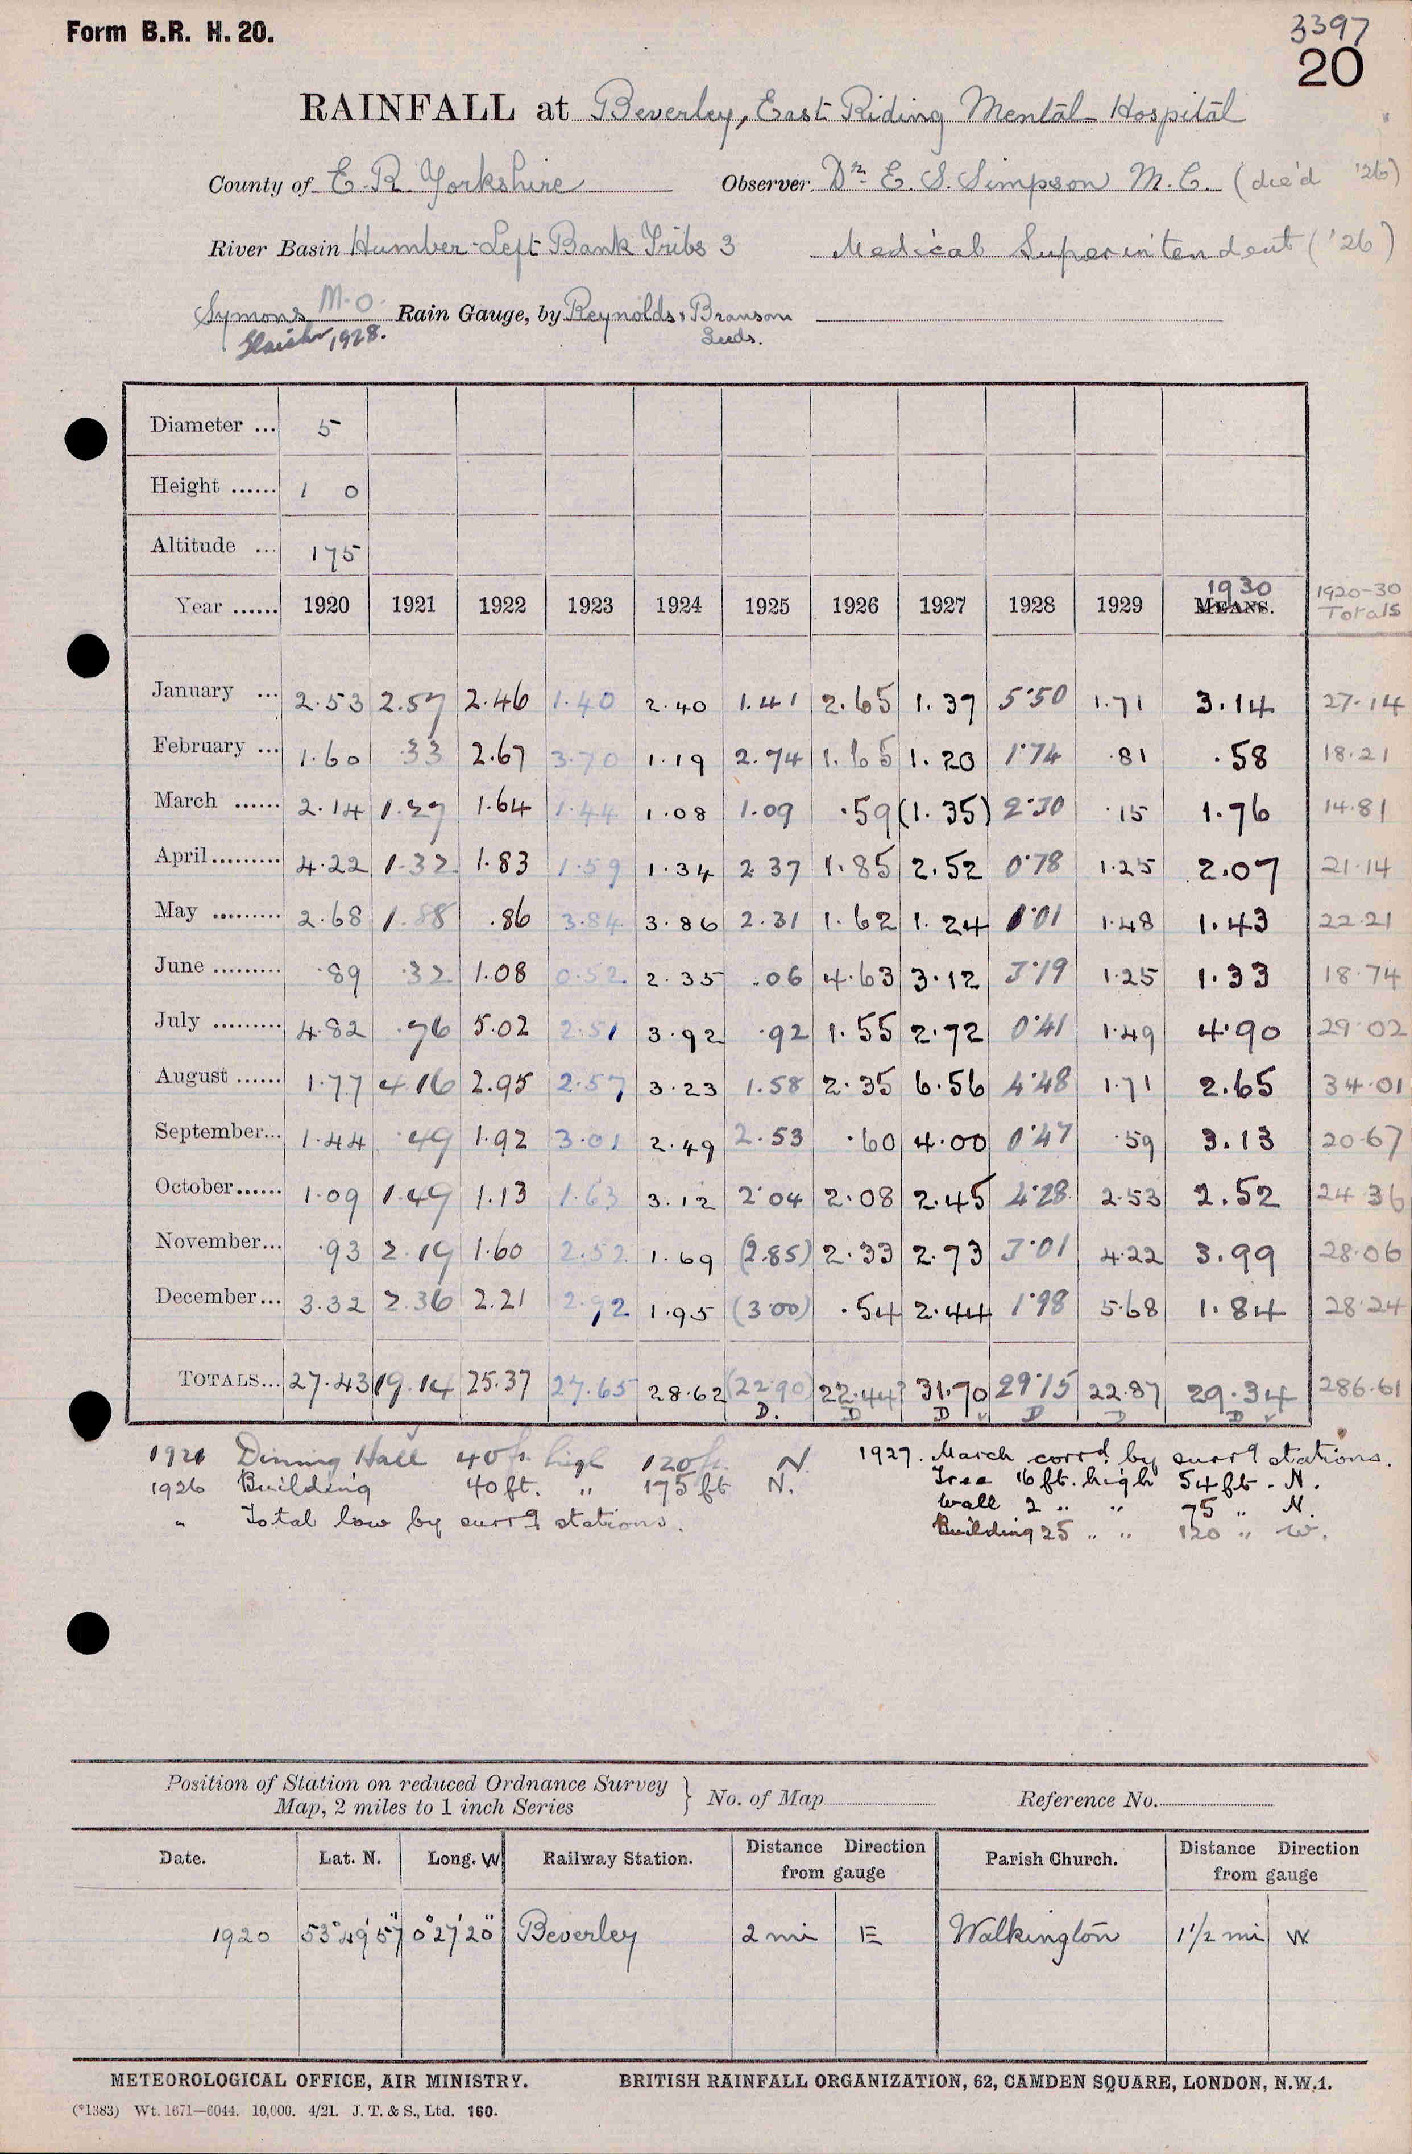 Form B.R. H. 20.
3397
20
RAINFALL at Beverley, East Riding Mental Hospital
County of E. R. Yorkshire Observer Dr. E. S. Simpson M.C. (died '26)
River Basin Humber-Left Bank Tribs 3 Medical Superintendent ('26)
Symons M.O. Rain Gauge, by Reynolds & Branson
Glaisher 1928. Leeds.
Diameter ... 5
Height ...... 1 0
Altitude ... 175
1930 1920-30
Year ...... 1920 1921 1922 1923 1924 1925 1926 1927 1928 1929 MEANS. Totals
January ... 2.53 2.57 2.46 1.40 2.40 1.41 2.65 1.37 5.50 1.71 3.14 27.14
February ... 1.60 .33 2.67 3.70 1.19 2.74 1.65 1.20 1.74 .81 .58 18.21
March ...... 2.14 1.27 1.64 1.44 1.08 1.09 .59 (1.35) 2.30 .15 1.76 14.81
April......... 4.22 1.32 1.83 1.59 1.34 2.37 1.85 2.52 0.78 1.25 2.07 21.14
May ......... 2.68 1.88 .86 3.84 3.86 2.31 1.62 1.24 1.01 1.48 1.43 22.21
June ......... .89 .32 1.08 0.52 2.35 .06 4.63 3.12 3.19 1.25 1.33 18.74
July ......... 4.82 .76 5.02 2.51 3.92 .92 1.55 2.72 0.41 1.49 4.90 29.02
August ...... 1.77 4.16 2.95 2.57 3.23 1.58 2.35 6.56 4.48 1.71 2.65 34.01
September... 1.44 .49 1.92 3.01 2.49 2.53 .60 4.00 0.47 .59 3.13 20.67
October...... 1.09 1.49 1.13 1.63 3.12 2.04 2.08 2.45 4.28 2.53 2.52 24.36
November... .93 2.19 1.60 2.52 1.69 (2.85) 2.33 2.73 3.01 4.22 3.99 28.06
December... 3.32 2.36 2.21 2.92 1.95 (3.00) .54 2.44 1.98 5.68 1.84 28.24
TOTALS... 27.43 19.14 25.37 27.65 28.62 (22.90) 22.44? 31.70 29.15 22.87 29.34 286.61
D. D D D D D
1921 Dining Hall 40ft. high 120ft. N
1926 Building 40ft. " 175 ft N.
" Total low by surrg stations.
1927. March corrd by surrg stations.
Tree 16 ft. high 54 ft. N.
Wall 2 " " 75 " N.
Building 25 " " 120 " W.
Position of Station on reduced Ordnance Survey
Map, 2 miles to 1 inch Series } No. of Map Reference No.
Date. Lat. N. Long. W Railway Station. Distance Direction from gauge Parish Church. Distance Direction from gauge
1920 53°49'57" 0°27'20" Beverley 2 mi E Walkington 1 1/2 mi W
METEOROLOGICAL OFFICE, AIR MINISTRY. BRITISH RAINFALL ORGANIZATION, 62, CAMDEN SQUARE, LONDON, N.W.1.
(*1383) Wt. 1671—6044. 10,000. 4/21. J. T. & S., Ltd. 160.